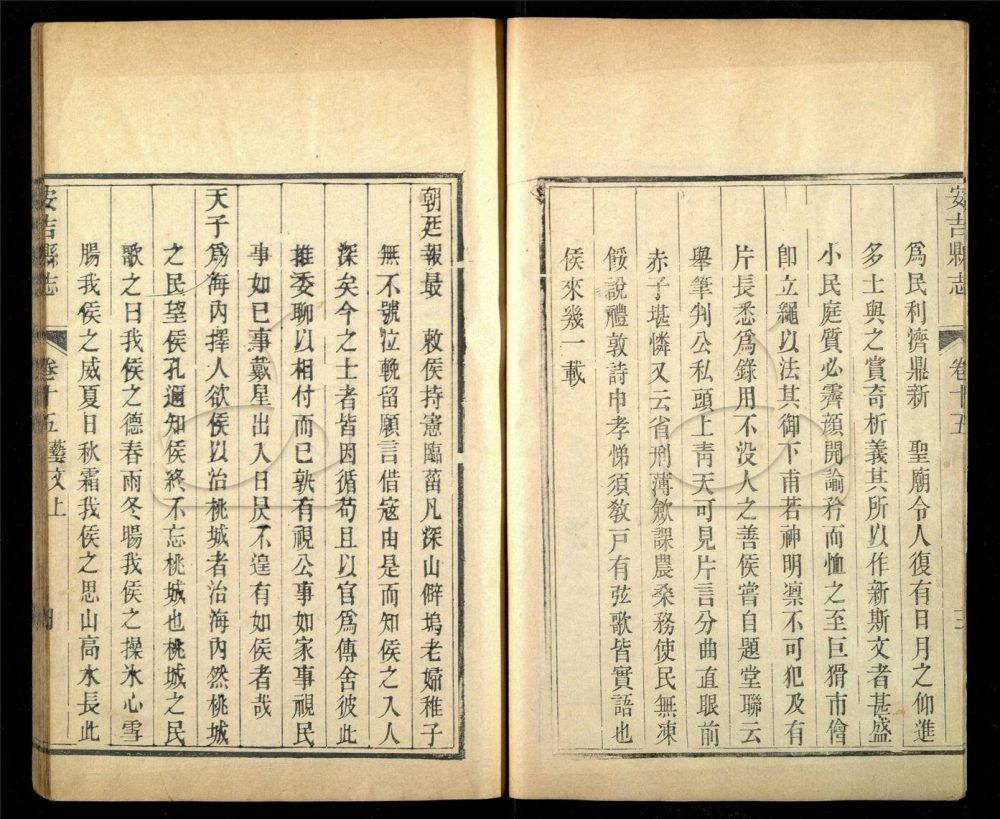 安吉縣志
卷十五
三
爲民利濟鼎新　聖廟令人復有日月之仰進
多士與之賞奇析義其所以作新斯文者甚盛
小民庭質必霽顔開諭矜而恤之至巨猾市儈
卽立繩以法其御下甫若神明凛不可犯及有
片長悉爲錄用不没人之善侯嘗自題堂聯云
舉筆判公私頭上靑天可見片言分曲直眼前
赤子堪憐又云省刑薄歛課農桑務使民無凍
餒說禮敦詩申孝悌須敎戸有弦歌皆實語也
侯來幾一載
朝廷報最　敕侯持憲臨菑凡深山僻塢老婦稚子
無不號泣輓留願言借寇由是而知侯之入人
深矣今之士者皆因循苟且以官爲傳舍彼此
推委聊以相付而已孰有視公事如家事視民
事如已事戴星出入日昃不遑有如侯者哉
天子爲海內擇人欲侯以治桃城者治海內然桃城
之民望侯孔邇知侯終不忘桃城也桃城之民
歌之曰我侯之德春雨冬暘我侯之操氷心雪
腸我侯之威夏日秋霜我侯之思山高水長此
安吉縣志
卷十五
藝文上